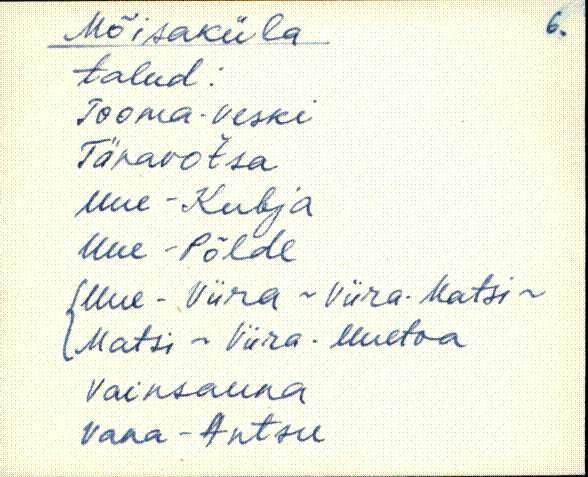 Mõisaküla 6.
talud:
Tooma-Veski
Tänavotsa
Uue-Kubja
Uue-Põlde
Uue-Viira ~ Viira-Matsi ~
Matsi ~ Viira-Uuetoa
Vainsauna
Vana-Antsu